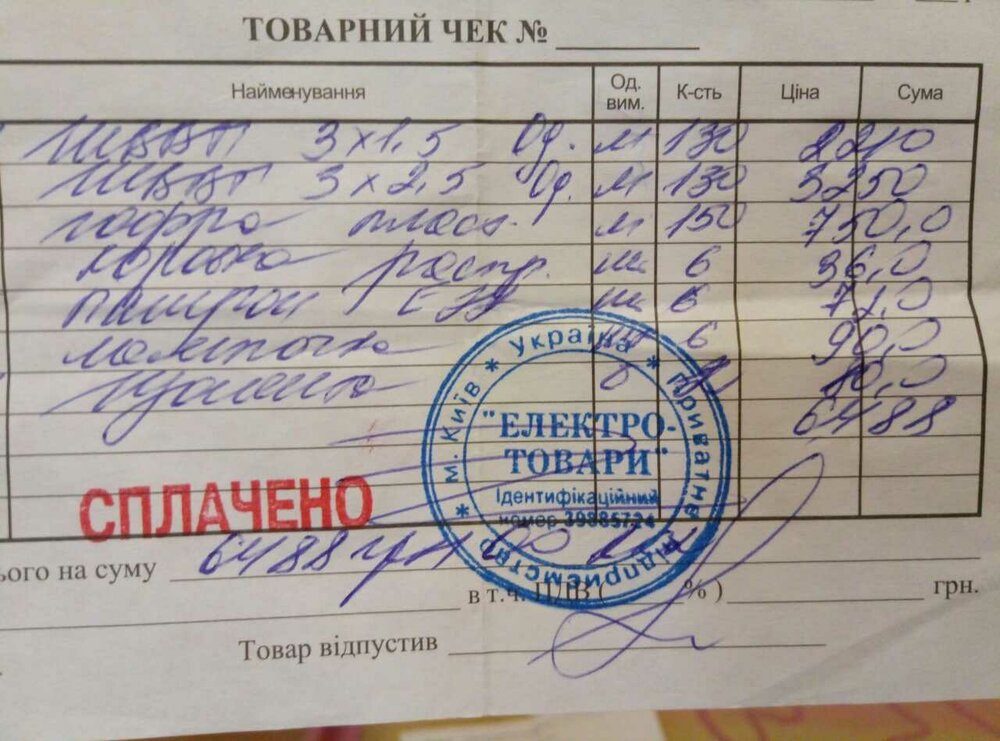 ТОВАРНИЙ ЧЕК №
Найменування Од. вим. К-сть Ціна Сума
ШВВП 3х1,5 Од. м 130 2210
ШВВП 3х2,5 Од. м 130 3250
гофра пласт. м 150 750,0
коробка распр. шт 6 36,0
патрон Е27 шт 6 72,0
лампочка шт 6 90,0
изолента 80,0
6488
СПЛАЧЕНО
Україна * Приватне підприємство * м. Київ *
"ЕЛЕКТРО-
ТОВАРИ"
Ідентифікаційний
номер 39885724
ього на суму 6488 грн 00
в т.ч. ПДВ ( % ) грн.
Товар відпустив